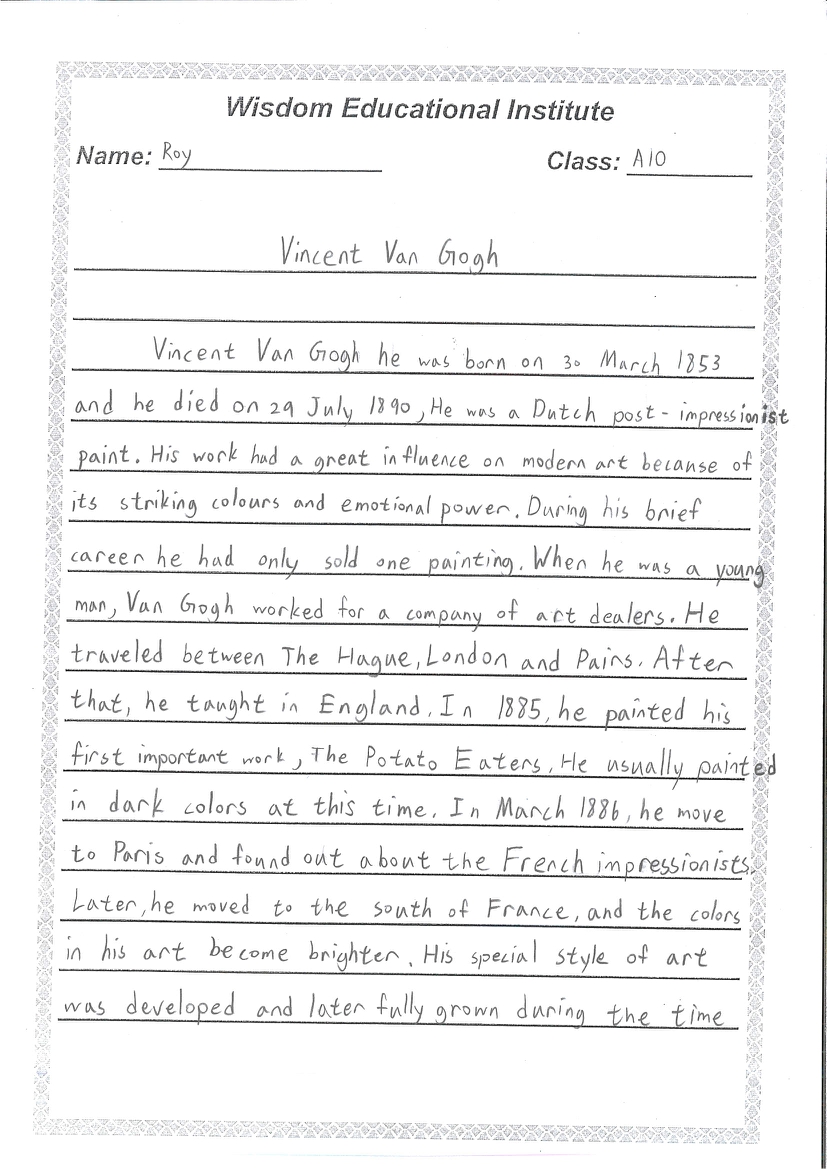 Wisdom Educational Institute
Name: Roy Class: A10
Vincent Van Gogh
Vincent Van Gogh he was born on 30 March 1853
and he died on 29 July 1890, He was a Dutch post-impressionist
paint. His work had a great influence on modern art because of
its striking colours and emotional power. During his brief
career he had only sold one painting. When he was a young
man, Van Gogh worked for a company of art dealers. He
traveled between The Hague, London and Pairs. After
that, he taught in England. In 1885, he painted his
first important work, The Potato Eaters. He usually painted
in dark colors at this time. In March 1886, he move
to Paris and found out about the French impressionists.
Later, he moved to the south of France, and the colors
in his art become brighter. His special style of art
was developed and later fully grown during the time